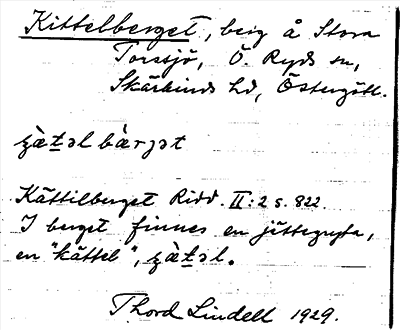 Kittelberget, berg å Stora
Torssjö, Ö. Ryds sn,
Skärkinds hd, Östergötl.
ʂæ̀təl bæ̀rjət
Kättilberget Ridd. II: 2 s. 822.
I berget finnes en jättegryta,
en "kättel", ʂæ̀təl.
Thord Lindell 1929.